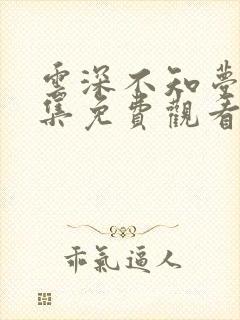 雲深不知夢
集免費觀看
乖氣逼人